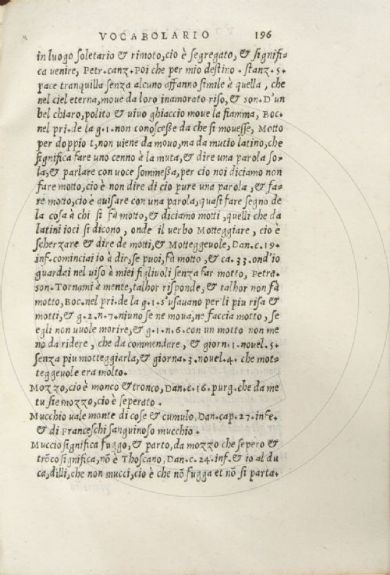 VOCABOLARIO 196
in luogo soletario & rimoto, cio è segregato, & signifi=
ca venire, Petr. canz. Poi che per mio destino. stanz. 5.
pace tranquilla senza alcuno affanno simile à quella, che
nel ciel eterna, moue da loro inamorato riso, & son. D'un
bel chiaro, polito & uiuo ghiaccio moue la fiamma, Boc.
nel pri. de la g. 1. non conoscesse da che si mouesse, Motto
per doppio t, non uiene da mouo, ma da mutio latino, che
significa fare uno cenno à la muta, & dire una parola so=
la, & parlare con uoce sommessa, per cio noi diciamo non
fare motto, cio è non dire di cio pure una parola, & fa=
re motto, cio è auisare con una parola, quasi fare segno de
la cosa à chi si fà motto, & diciamo motti, quelli che da
latini ioci si dicono, onde il uerbo Motteggiare, cio è
scherzare & dire de motti, & Motteggeuole, Dan. c. 19.
inf. cominciai io à dir, se puoi, fà motto, & ca. 33. ond'io
guardai nel uiso à miei figliuoli senza far motto, Petra.
son. Tornami à mente, talhor risponde, & talhor non fà
motto, Boc. nel pri. de la g. 1. s'usauano per li piu risa &
motti, & g. 2. n. 7. niuno se ne moua, ne faccia motto, se
egli non uuole morire, & g. 1. n. 6. con un motto non me
no da ridere, che da commendere, & giorn. 1. nouel. 5.
senza piu motteggiarla, & giorna. 3. nouel. 4. che moto
teggeuole era molto.
Mozzo, cio è monco & tronco, Dan. c. 16. purg. che da me
tu sie mozzo, cio è seperato.
Mucchio uale monte di cose & cumulo, Dan. cap. 27. infe.
& di Franceschi sanguinoso mucchio.
Muccio significa fuggo, & parto, da mozzo che sepero &
trōco significa, nō è Thoscano, Dan. c. 24. inf. & io al du
ca, dilli, che non mucci, cio è che nō fugga et nō si parta.